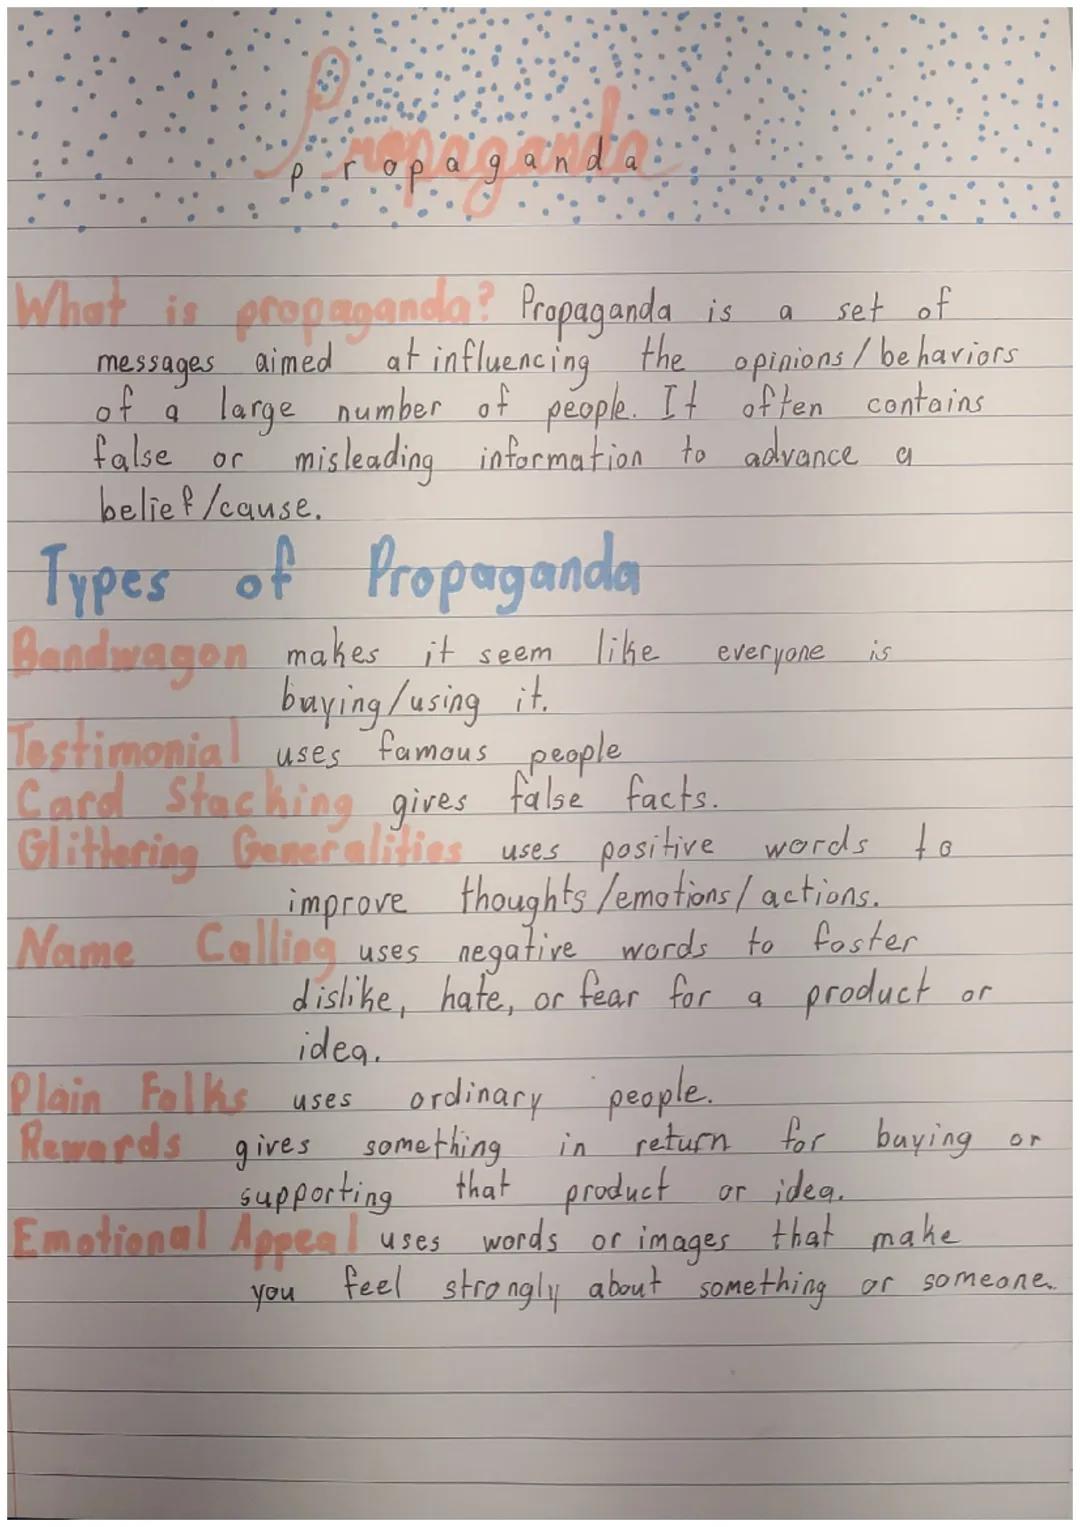 Propaganda
propaganda
What is propaganda? Propaganda is a set of
messages aimed at influencing the opinions/behaviors
of a large number of people. It often contains
false or misleading information to advance a
belief/cause.
Types of Propaganda
Bandwagon makes it seem like everyone is
buying/using it.
Testimonial uses famous people
Card Stacking gives false facts.
Glittering Generalities uses positive words to
improve thoughts/emotions/actions.
Name Calling uses negative words to foster
dislike, hate, or fear for a product or
idea.
Plain Folks uses ordinary people.
Rewards gives something in return for buying or
supporting that product or idea.
Emotional Appeal uses words or images that make
you feel strongly about something or someone.